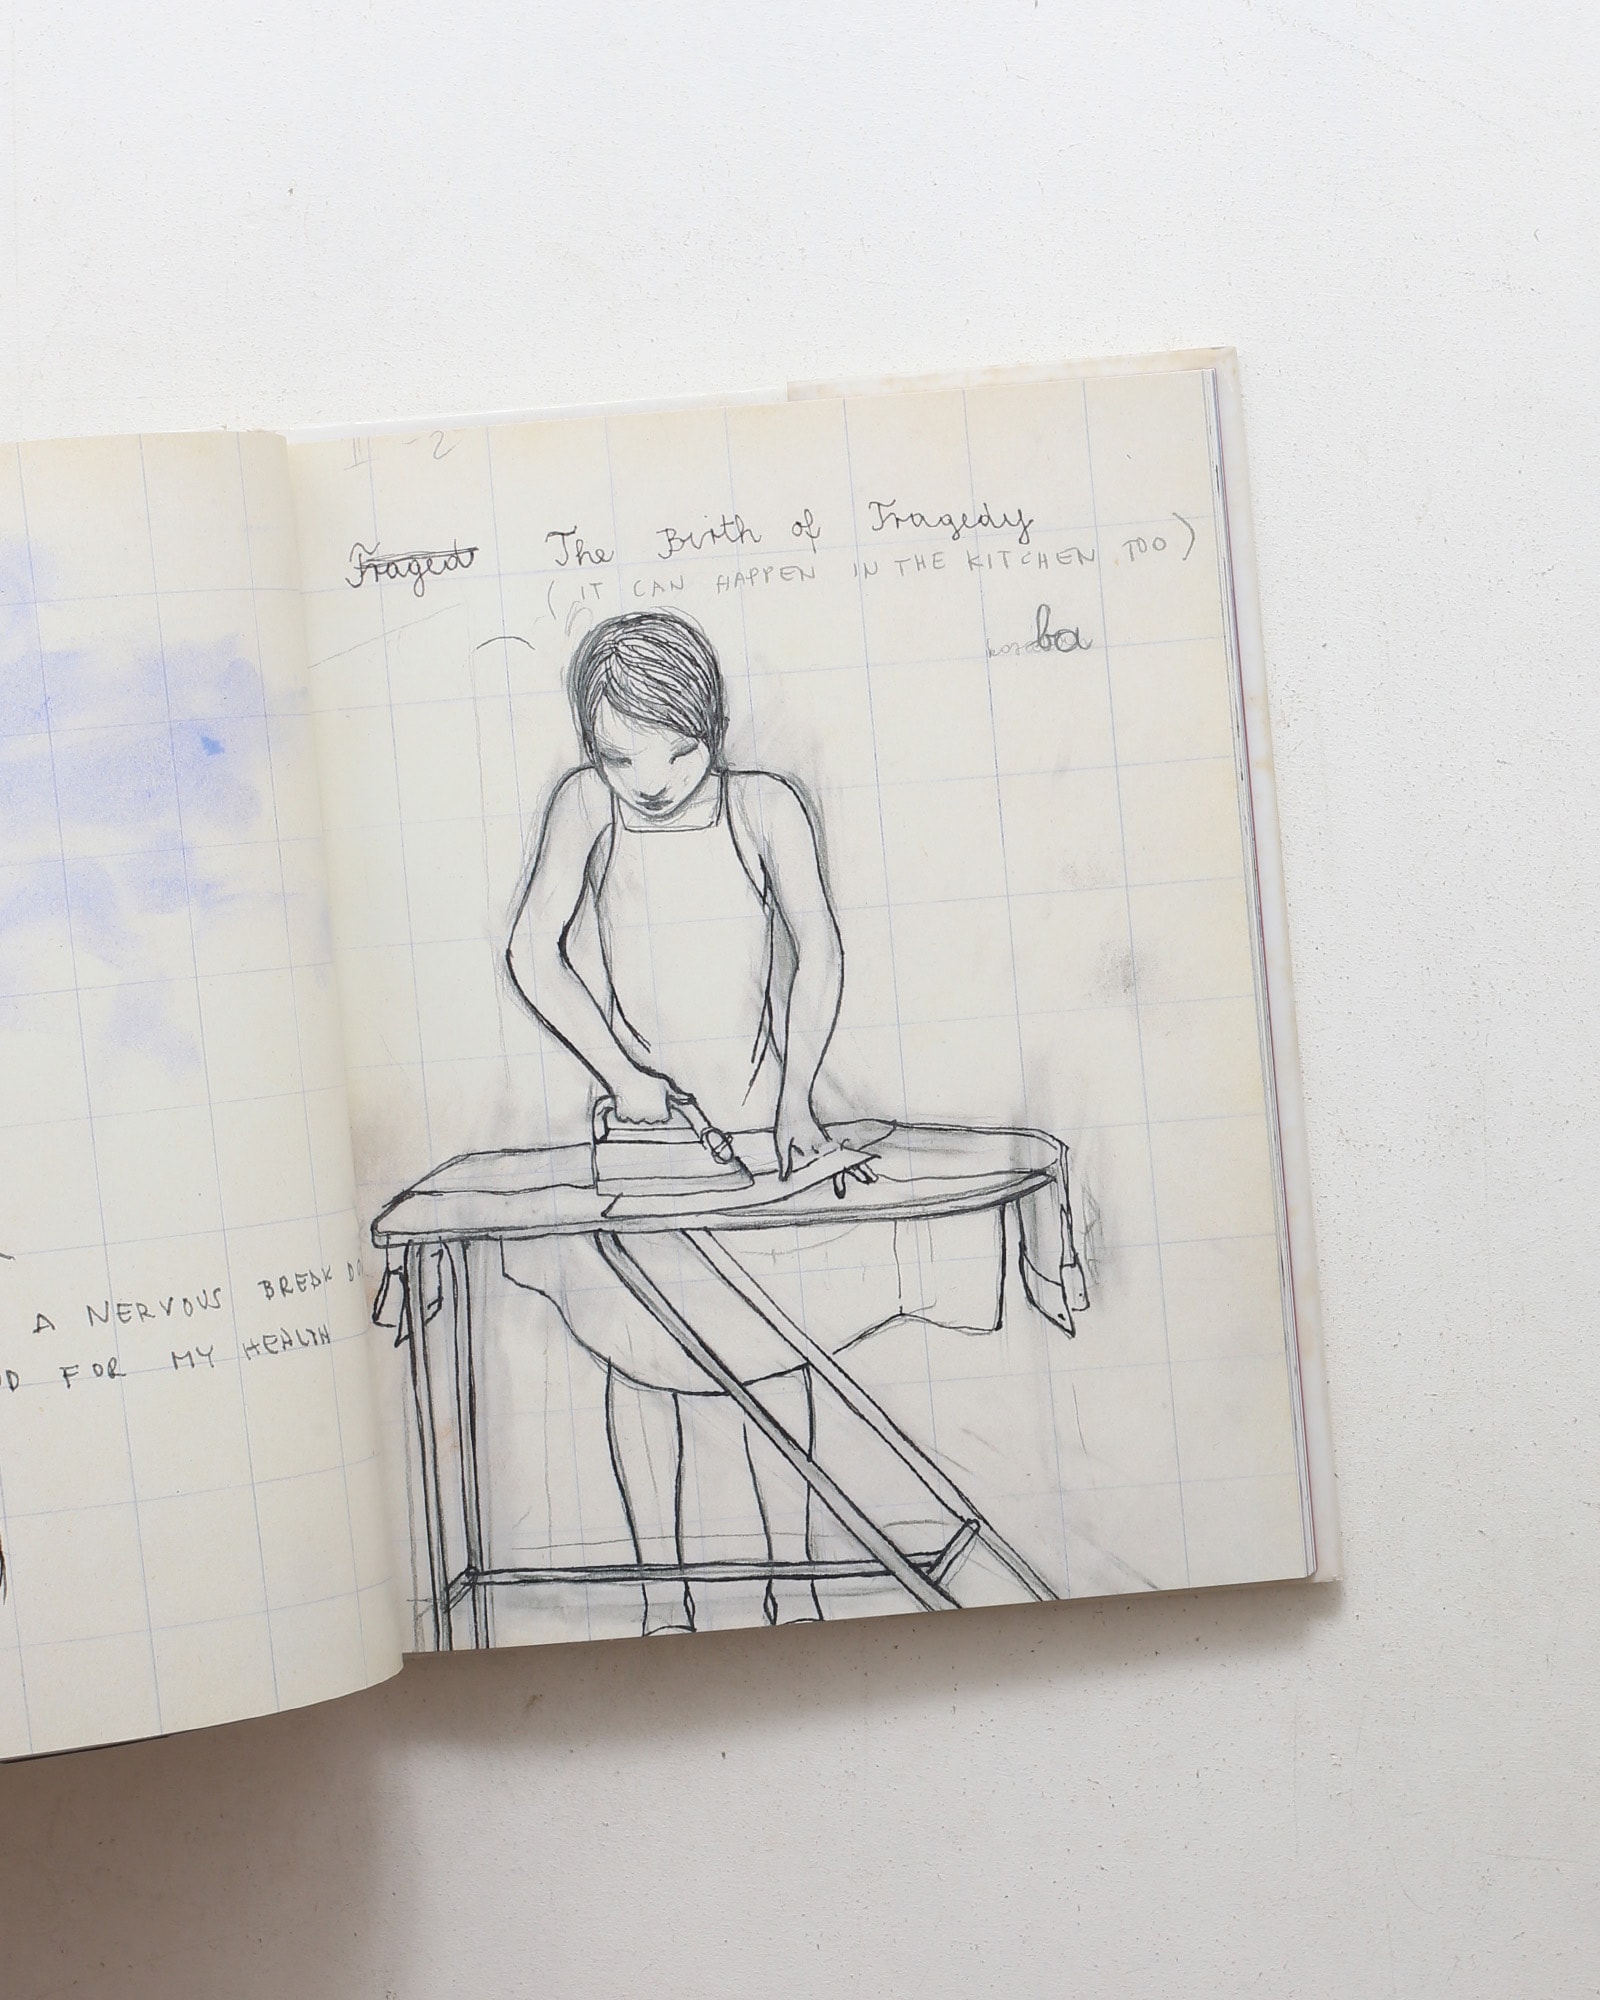 A NERVOUS BREAK
FOR MY HEALTH
II -2
Traged The Birth of Tragedy
(IT CAN HAPPEN IN THE KITCHEN TOO)
ba